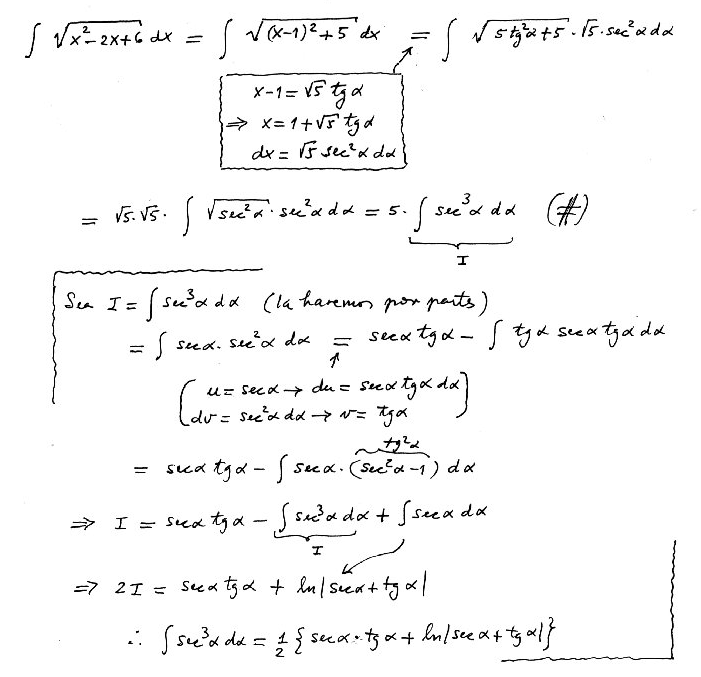 ∫ √(x²-2x+6) dx = ∫ √((x-1)²+5) dx = ∫ √(5 tg²α+5) · √5 · sec²α dα
x-1 = √5 tg α
⇒ x = 1+√5 tg α
dx = √5 sec²α dα
= √5·√5 · ∫ √(sec²α) · sec²α dα = 5 · ∫ sec³α dα (#)
I
Sea I = ∫ sec³α dα (la haremos por parts)
= ∫ secα · sec²α dα = secα tgα - ∫ tgα secα tgα dα
(u = secα → du = secα tgα dα)
(dv = sec²α dα → v = tgα)
tg²α
= secα tgα - ∫ secα · (sec²α - 1) dα
⇒ I = secα tgα - ∫ sec³α dα + ∫ secα dα
I
⇒ 2I = secα tgα + ln|secα + tgα|
∴ ∫ sec³α dα = 1/2 {secα · tgα + ln|secα + tgα|}